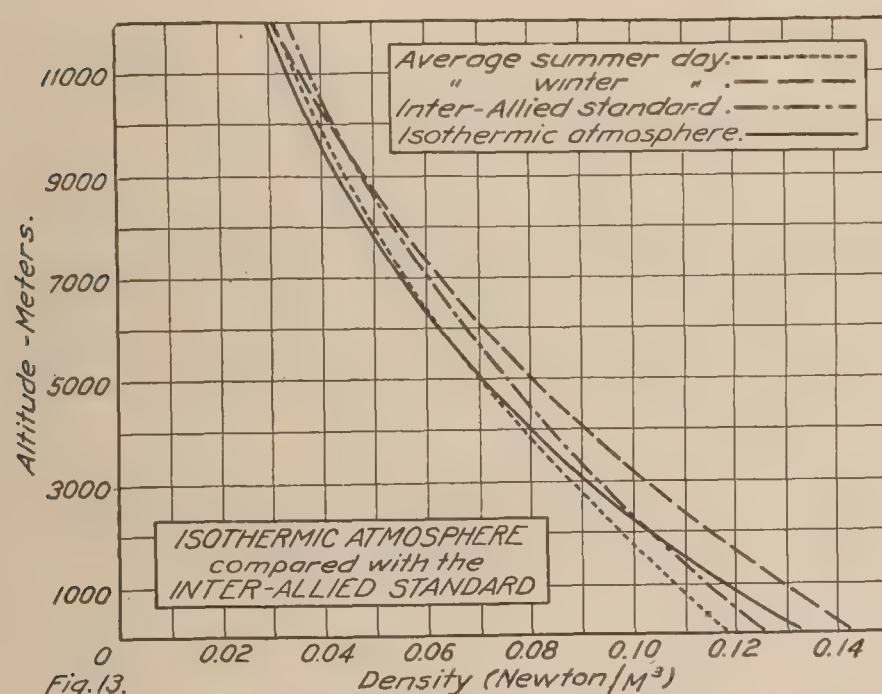 Average summer day.
" winter " .
Inter-Allied standard.
Isothermic atmosphere.
11000
9000
7000
5000
3000
1000
Altitude - Meters.
ISOTHERMIC ATMOSPHERE
compared with the
INTER-ALLIED STANDARD
0 0.02 0.04 0.06 0.08 0.10 0.12 0.14
Fig.13. Density (Newton/M³)